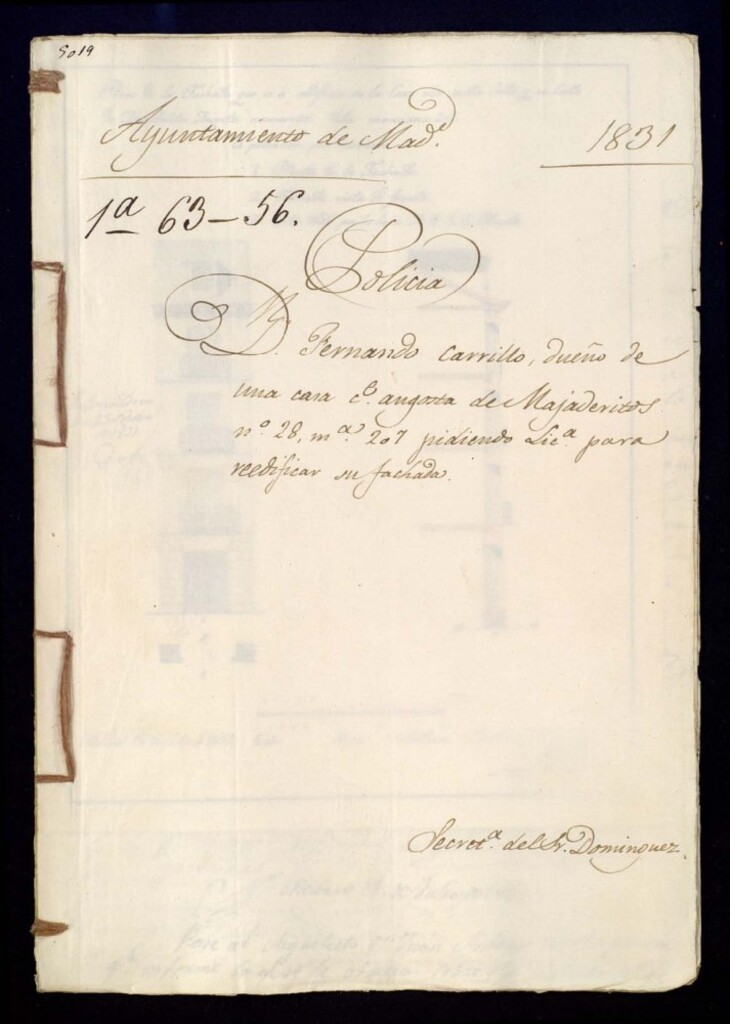 5019
Ayuntamiento de Mad.d
1831
1ª 63-56.
Policia
D.n Fernando Carrillo, dueño de
una casa c.e angosta de Majaderitos
nº 28, m.ª 207 pidiendo Lic.ª para
reedificar su fachada.
Secret.ª del Sr. Dominguez.